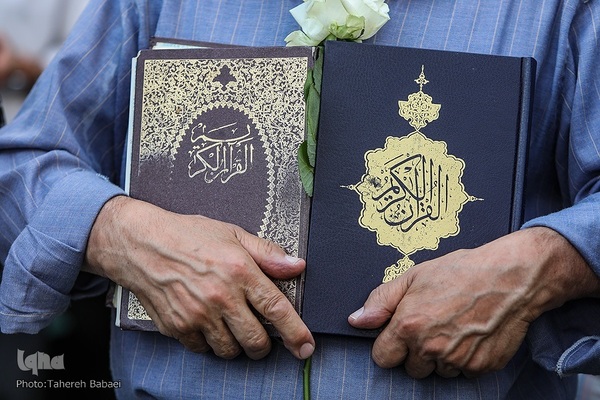 القرآن الكريم
القرآن الكريم
iqna
Photo:Tahereh Babaei